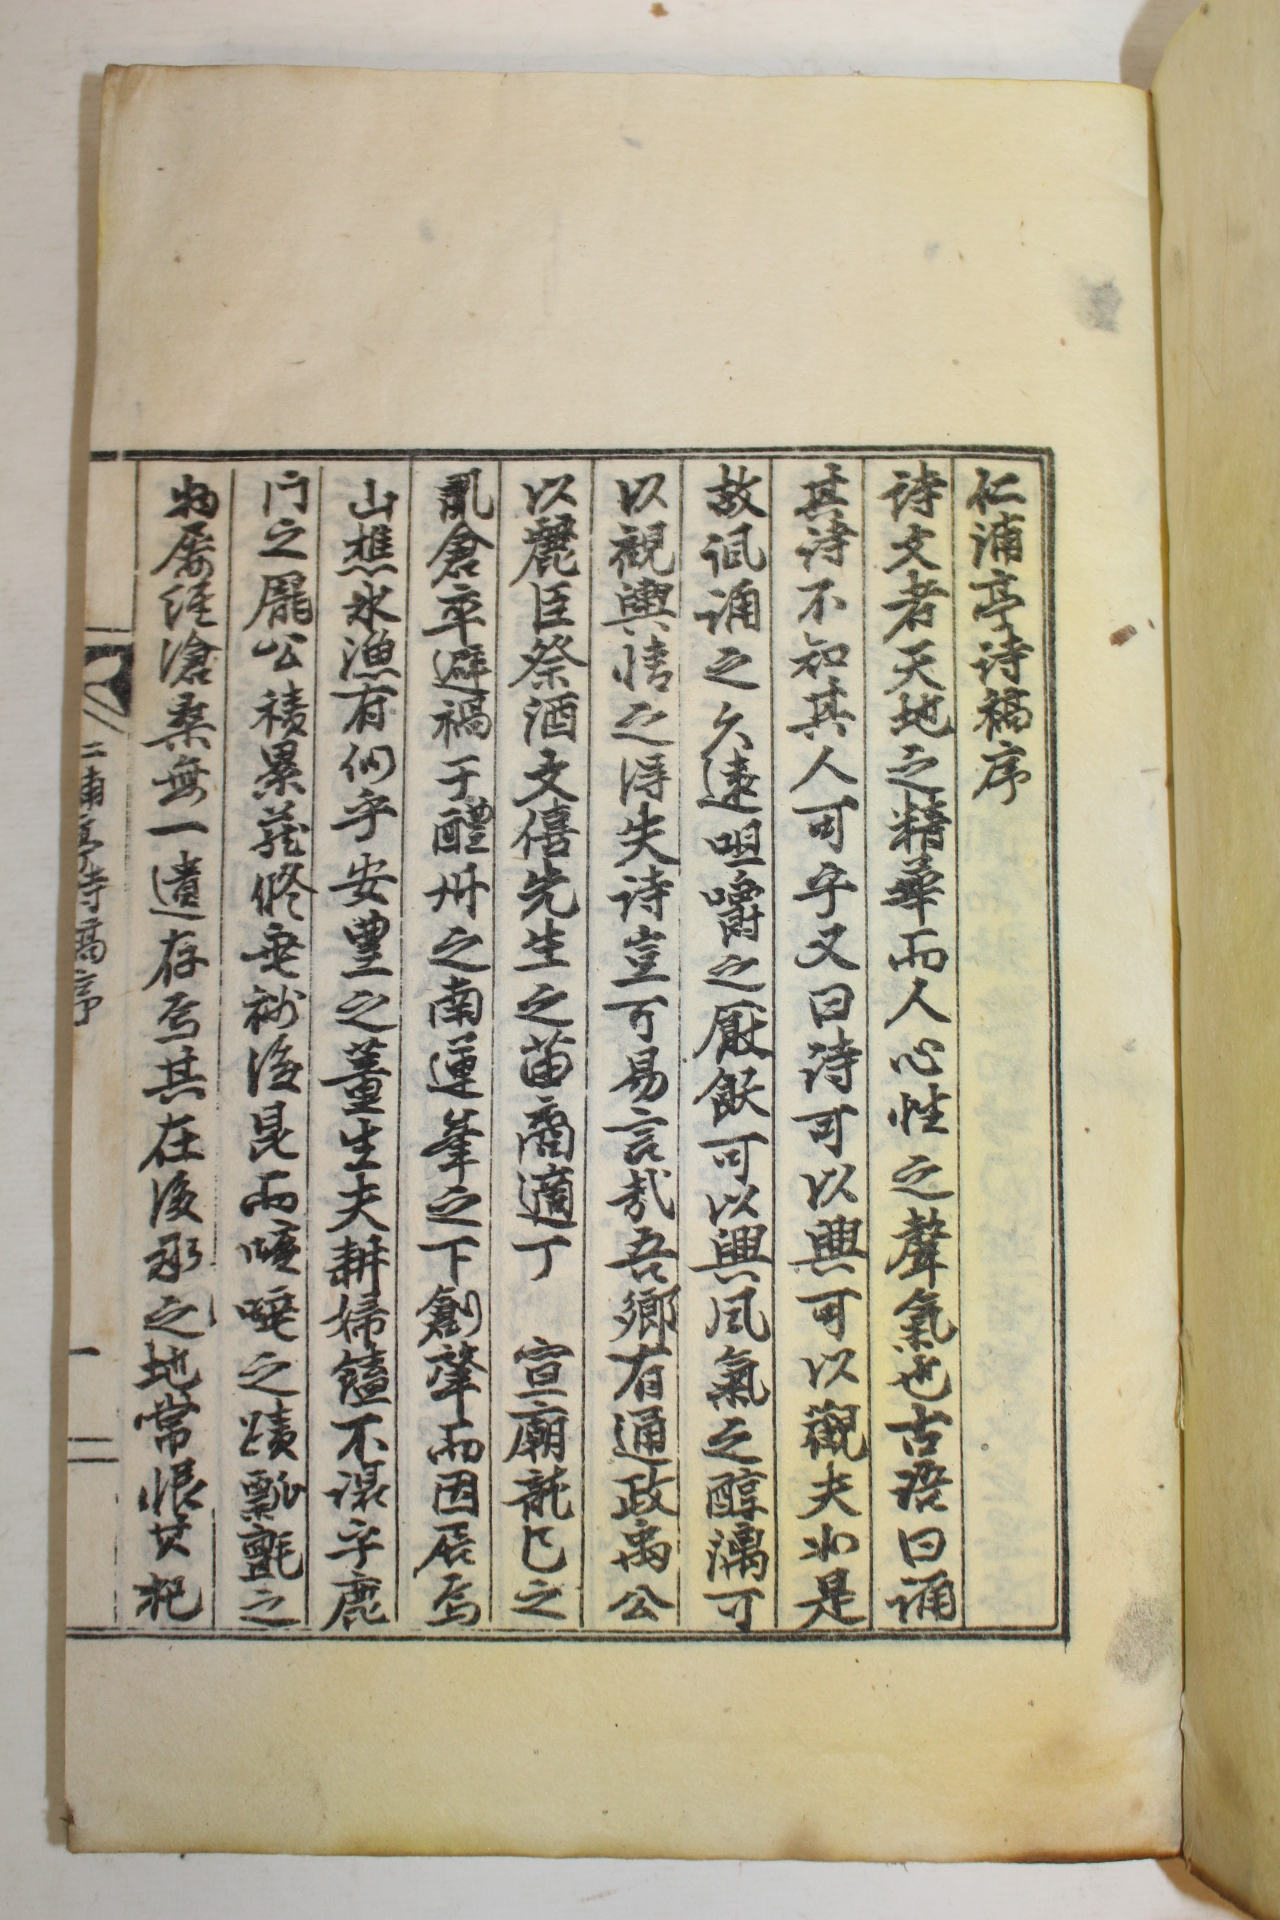 仁浦亭诗稿序
诗文者天地之精華而人心性之聲氣也古語曰誦
其诗不知其人可乎又曰诗可以興可以觀夫如是
故諷誦之久遠咀嚼之厭飫可以興風氣之醇漓可
以觀輿情之得失诗豈可易言哉吾鄉有通政禹公
以麗臣祭酒文僖先生之苗裔適丁 宣廟龍巳之
亂倉卒避禍于醴州之南運峯之下創肇而因居焉
山樵水漁有似乎安豊之董生夫耕婦饁不混乎鹿
门之龐公積累義修垂裕後昆而咳唾之蹟瓢氈之
物屡經滄桑無一遺存焉其在後承之地常恨其杞
仁浦亭诗稿序
一